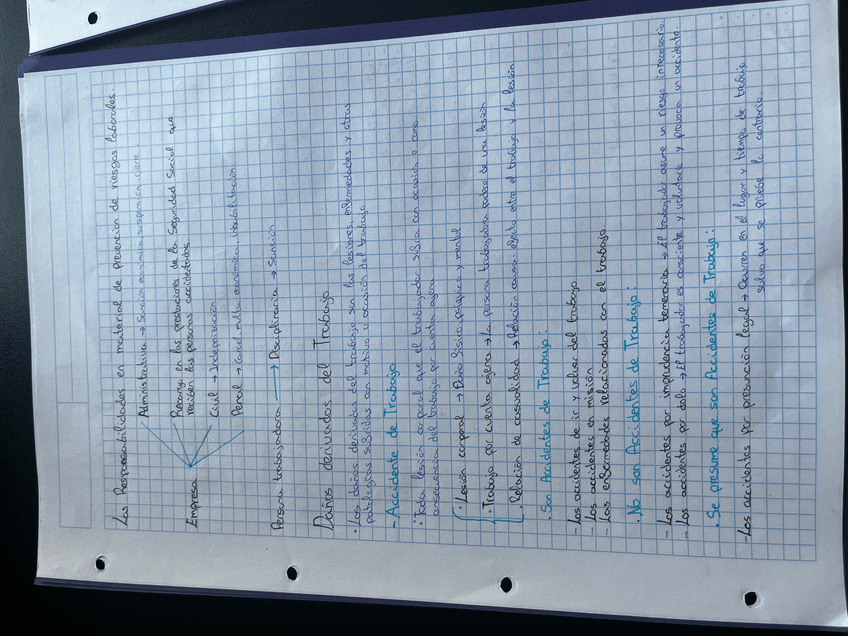 Las Responsabilidades en material de prevención de riesgos laborales.
Administrativa → Sanción económica, suspensión, cierre.
Recargo en las prestaciones de la Seguridad Social que
reciben las personas accidentadas.
Empresa
Civil → Indemnización
Penal → Cárcel, multa económica, inhabilitación.
Persona trabajadora → Disciplinaria → Sanción
Daños derivados del Trabajo
· Los daños derivados del trabajo son las lesiones, enfermedades y otras
patologías sufridas con motivo u ocasión del trabajo.
- Accidente de Trabajo
· Toda lesión corporal que el trabajador sufra con ocasión o como
consecuencia del trabajo por cuenta ajena
· Lesión corporal → Daño físico, psíquico y mental
· Trabajo por cuenta ajena → La persona trabajadora padece de una lesión
· Relación de casualidad → Relación causa-efecto entre el trabajo y la lesión
· Son Accidentes de Trabajo:
- Los accidentes de ir y volver del trabajo
- Los accidentes en misión
- Las enfermedades relacionadas con el trabajo.
· No son Accidentes de Trabajo:
- Los accidentes por imprudencia temeraria → El trabajador asume un riesgo innecesario.
- Los accidentes por dolo → El trabajador es consciente y voluntario y provoca un accidente.
· Se presume que son Accidentes de Trabajo:
- Los accidentes por presunción legal → Ocurren en el lugar y tiempo de trabajo
salvo que se pruebe lo contrario.